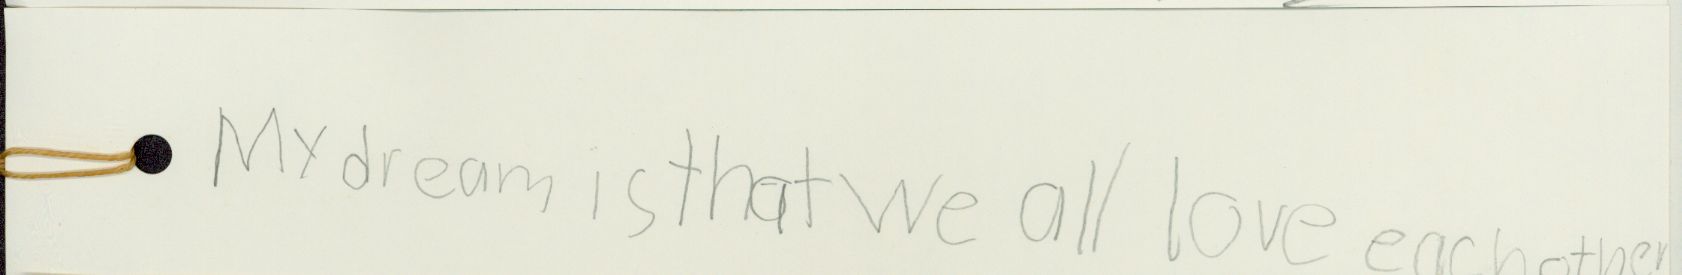 My dream is that we all love each other